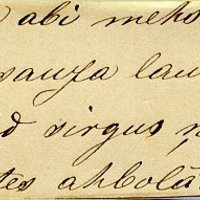 abi meh
sauza lau
sirgus
tes ahbolā